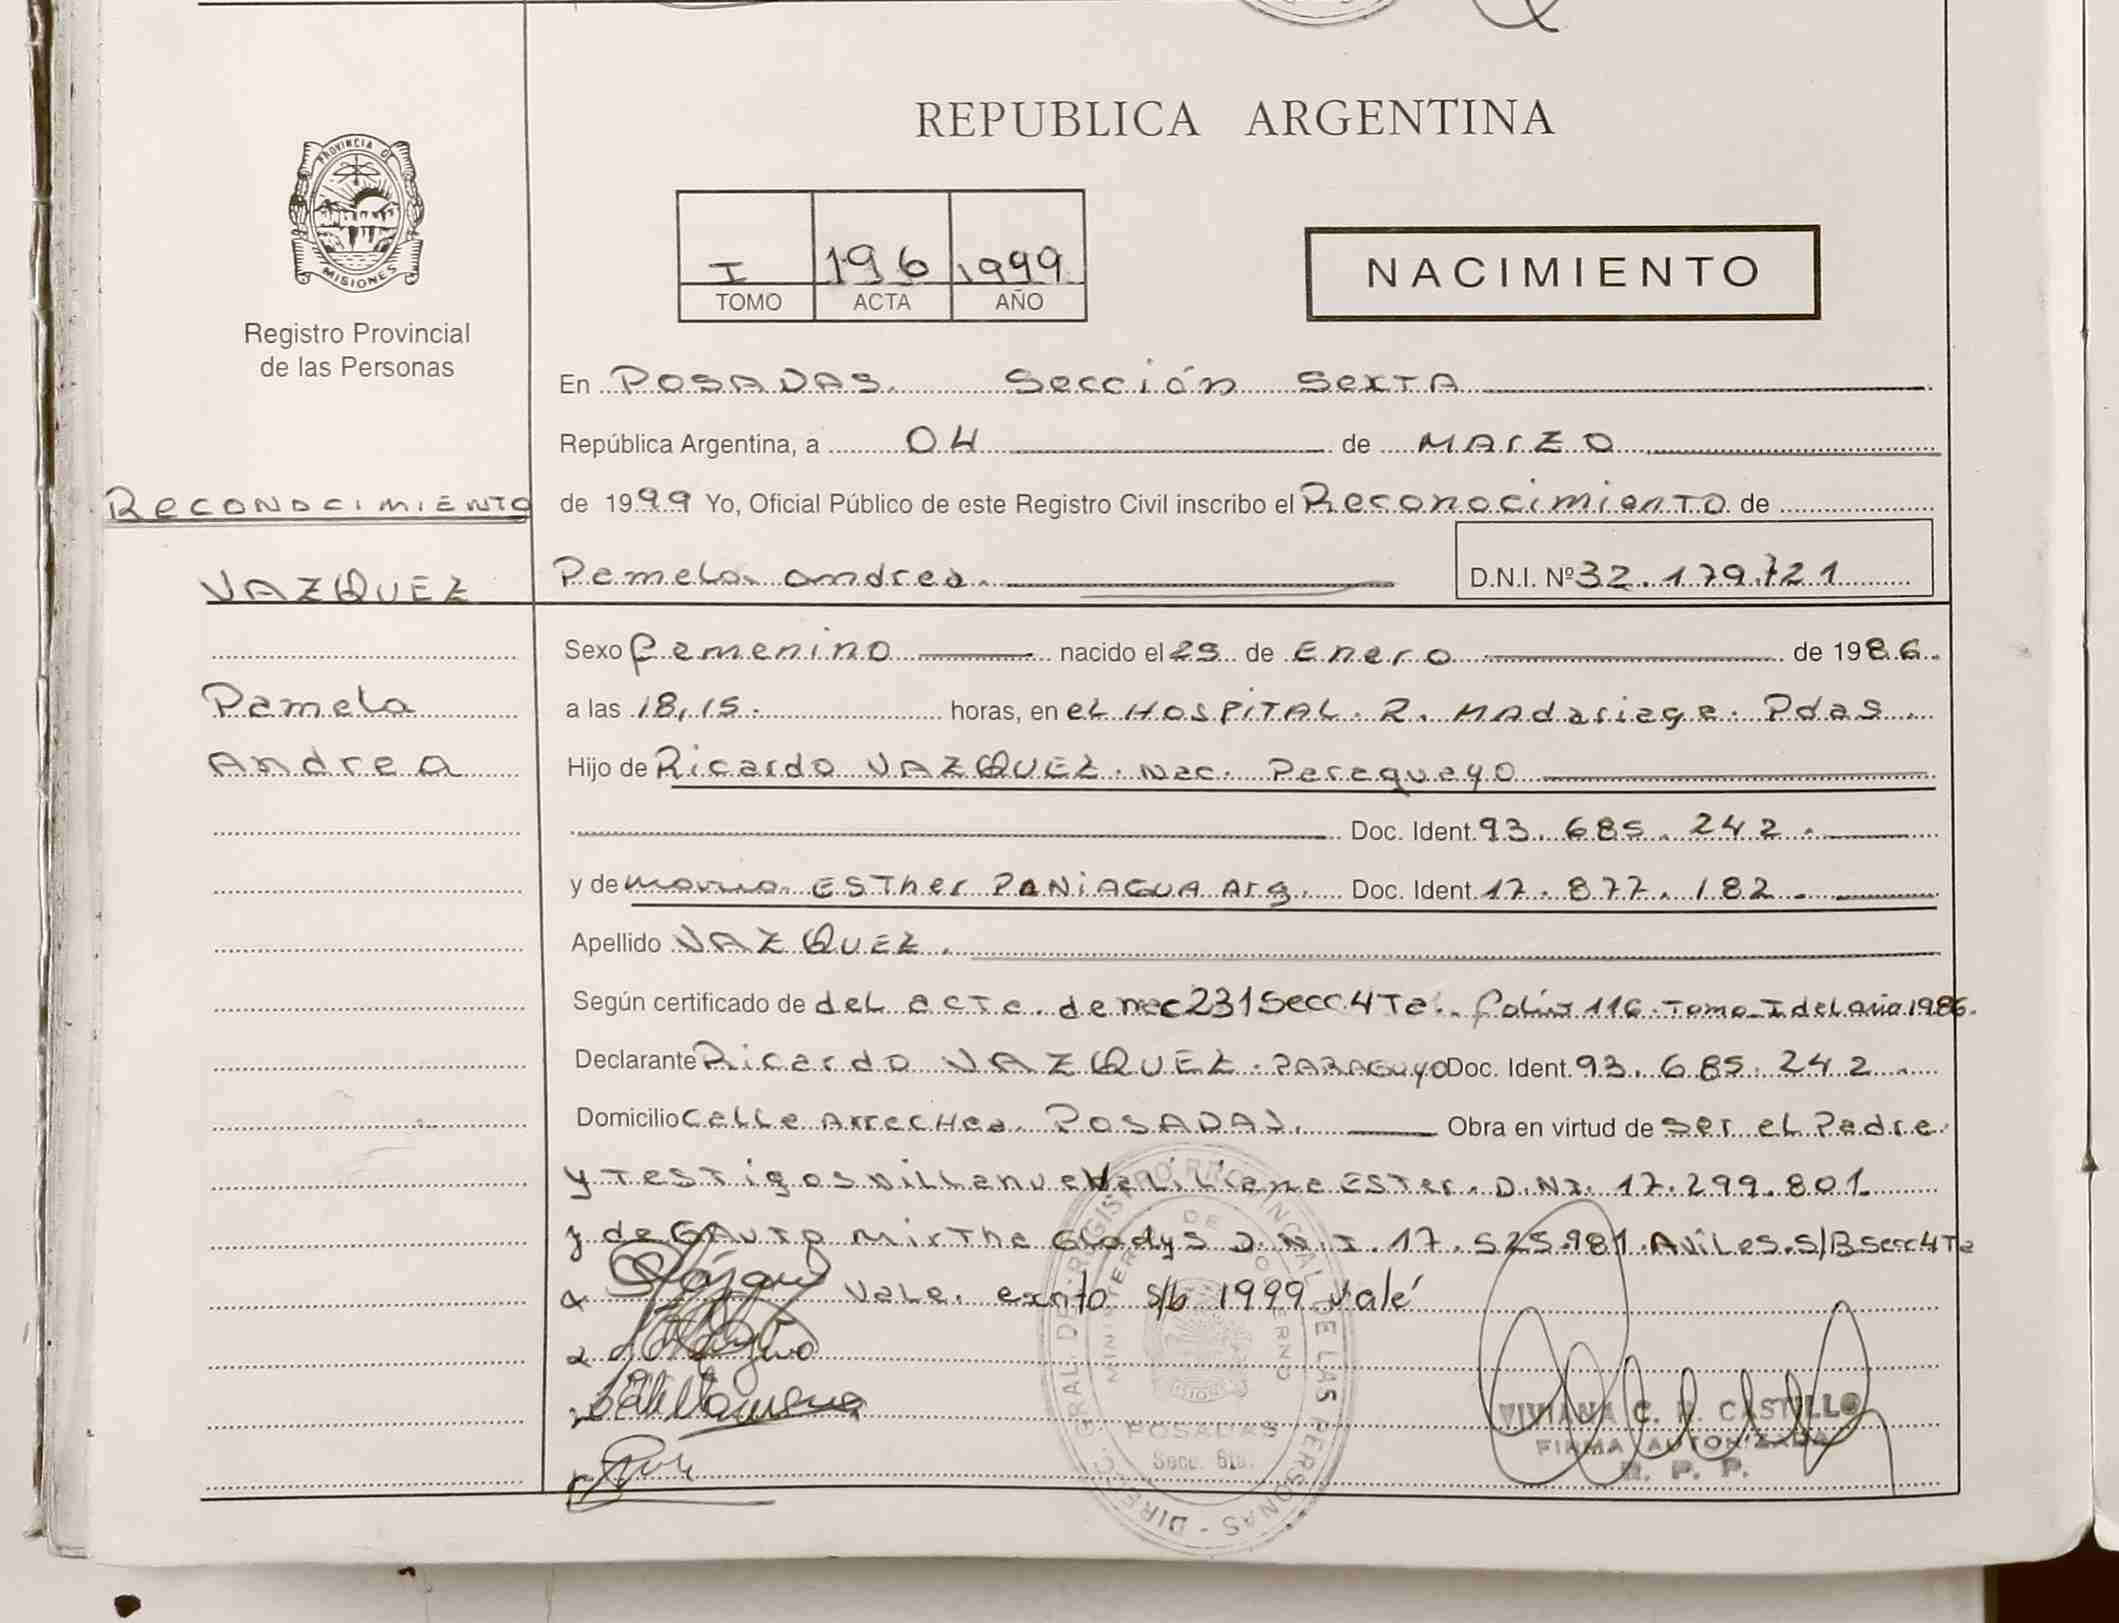 REPUBLICA ARGENTINA
PROVINCIA DE
MISIONES
Registro Provincial
de las Personas
I 196 1999
TOMO ACTA AÑO
NACIMIENTO
En POSADAS. Sección SexTA
República Argentina, a 04 de MArZO
RECONOCIMIENTO
de 1999 Yo, Oficial Público de este Registro Civil inscribo el ReconocimienTO de
VAZQUEZ
Pamela andrea. D.N.I. Nº 32.179.721
Sexo femenino nacido el 29 de Enero de 1986.
Pamela
a las 18,15. horas, en eL HOSPITAL. R. MAdariaga. Pdas.
Andrea
Hijo de Ricardo VAZQUEZ. Nac. Paraguayo
Doc. Ident. 93.685.242.
y de maria ESTher PANiAGUA Arg. Doc. Ident. 17.877.182.
Apellido VAZQUEZ.
Según certificado de deL acTa. de nac 231 Secc. 4Ta. folio 116. Tomo I deL año 1986.
Declarante Ricardo VAZQUEZ. PARAGUyo Doc. Ident. 93.685.242.
Domicilio caLLe ArrecHea. POSADAS. Obra en virtud de ser eL Padre.
y TesTigos ViLLanueVa LiLiana ESTer. D.NI. 17.299.801
y de GAUTO MirTha Gladys D.N.I. 17.525.981. AviLes. S/B Secc 4Ta
VaLe. s/b 1999 Vale
DIREC. GRAL. DEL REGISTRO PROVINCIAL DE LAS PERSONAS
MINISTERIO DE GOBIERNO
POSADAS
Secc. 6ta.
VIVIANA C. R. CASTILLO
FIRMA AUTORIZADA
R. P. P.